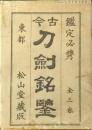 鑑定必携 全三巻
古今
刀劍銘鑒
東都 松山堂蔵版